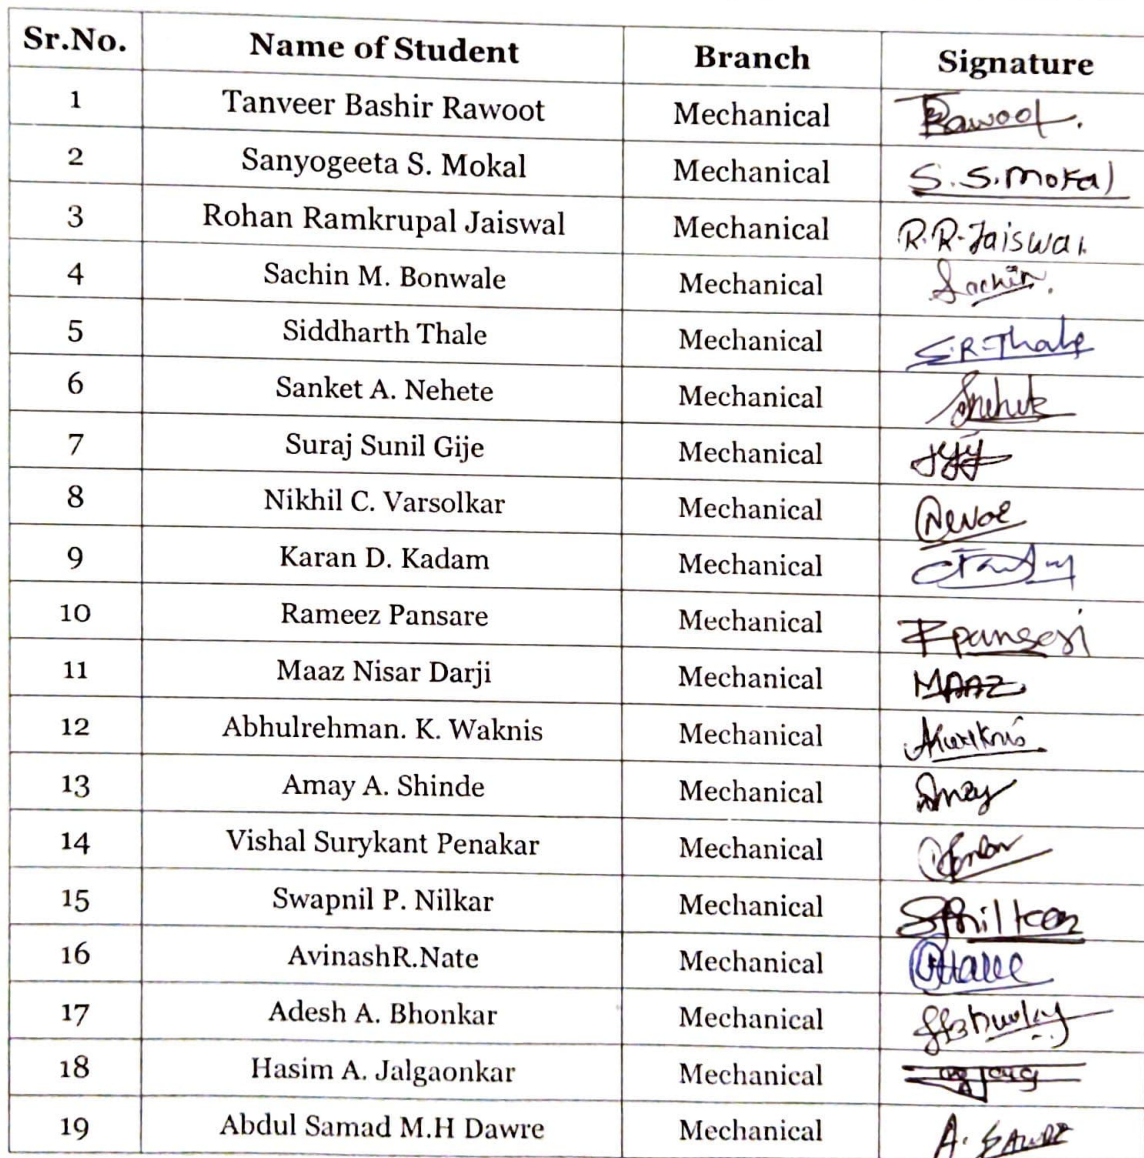 Sr.No. Name of Student Branch Signature
1 Tanveer Bashir Rawoot Mechanical Rawoot.
2 Sanyogeeta S. Mokal Mechanical S.S.Mokal
3 Rohan Ramkrupal Jaiswal Mechanical R.R.Jaiswal
4 Sachin M. Bonwale Mechanical Sachin.
5 Siddharth Thale Mechanical S.R.Thale
6 Sanket A. Nehete Mechanical
7 Suraj Sunil Gije Mechanical
8 Nikhil C. Varsolkar Mechanical
9 Karan D. Kadam Mechanical
10 Rameez Pansare Mechanical
11 Maaz Nisar Darji Mechanical MAAZ
12 Abhulrehman. K. Waknis Mechanical
13 Amay A. Shinde Mechanical Amay
14 Vishal Surykant Penakar Mechanical
15 Swapnil P. Nilkar Mechanical
16 AvinashR.Nate Mechanical
17 Adesh A. Bhonkar Mechanical
18 Hasim A. Jalgaonkar Mechanical
19 Abdul Samad M.H Dawre Mechanical